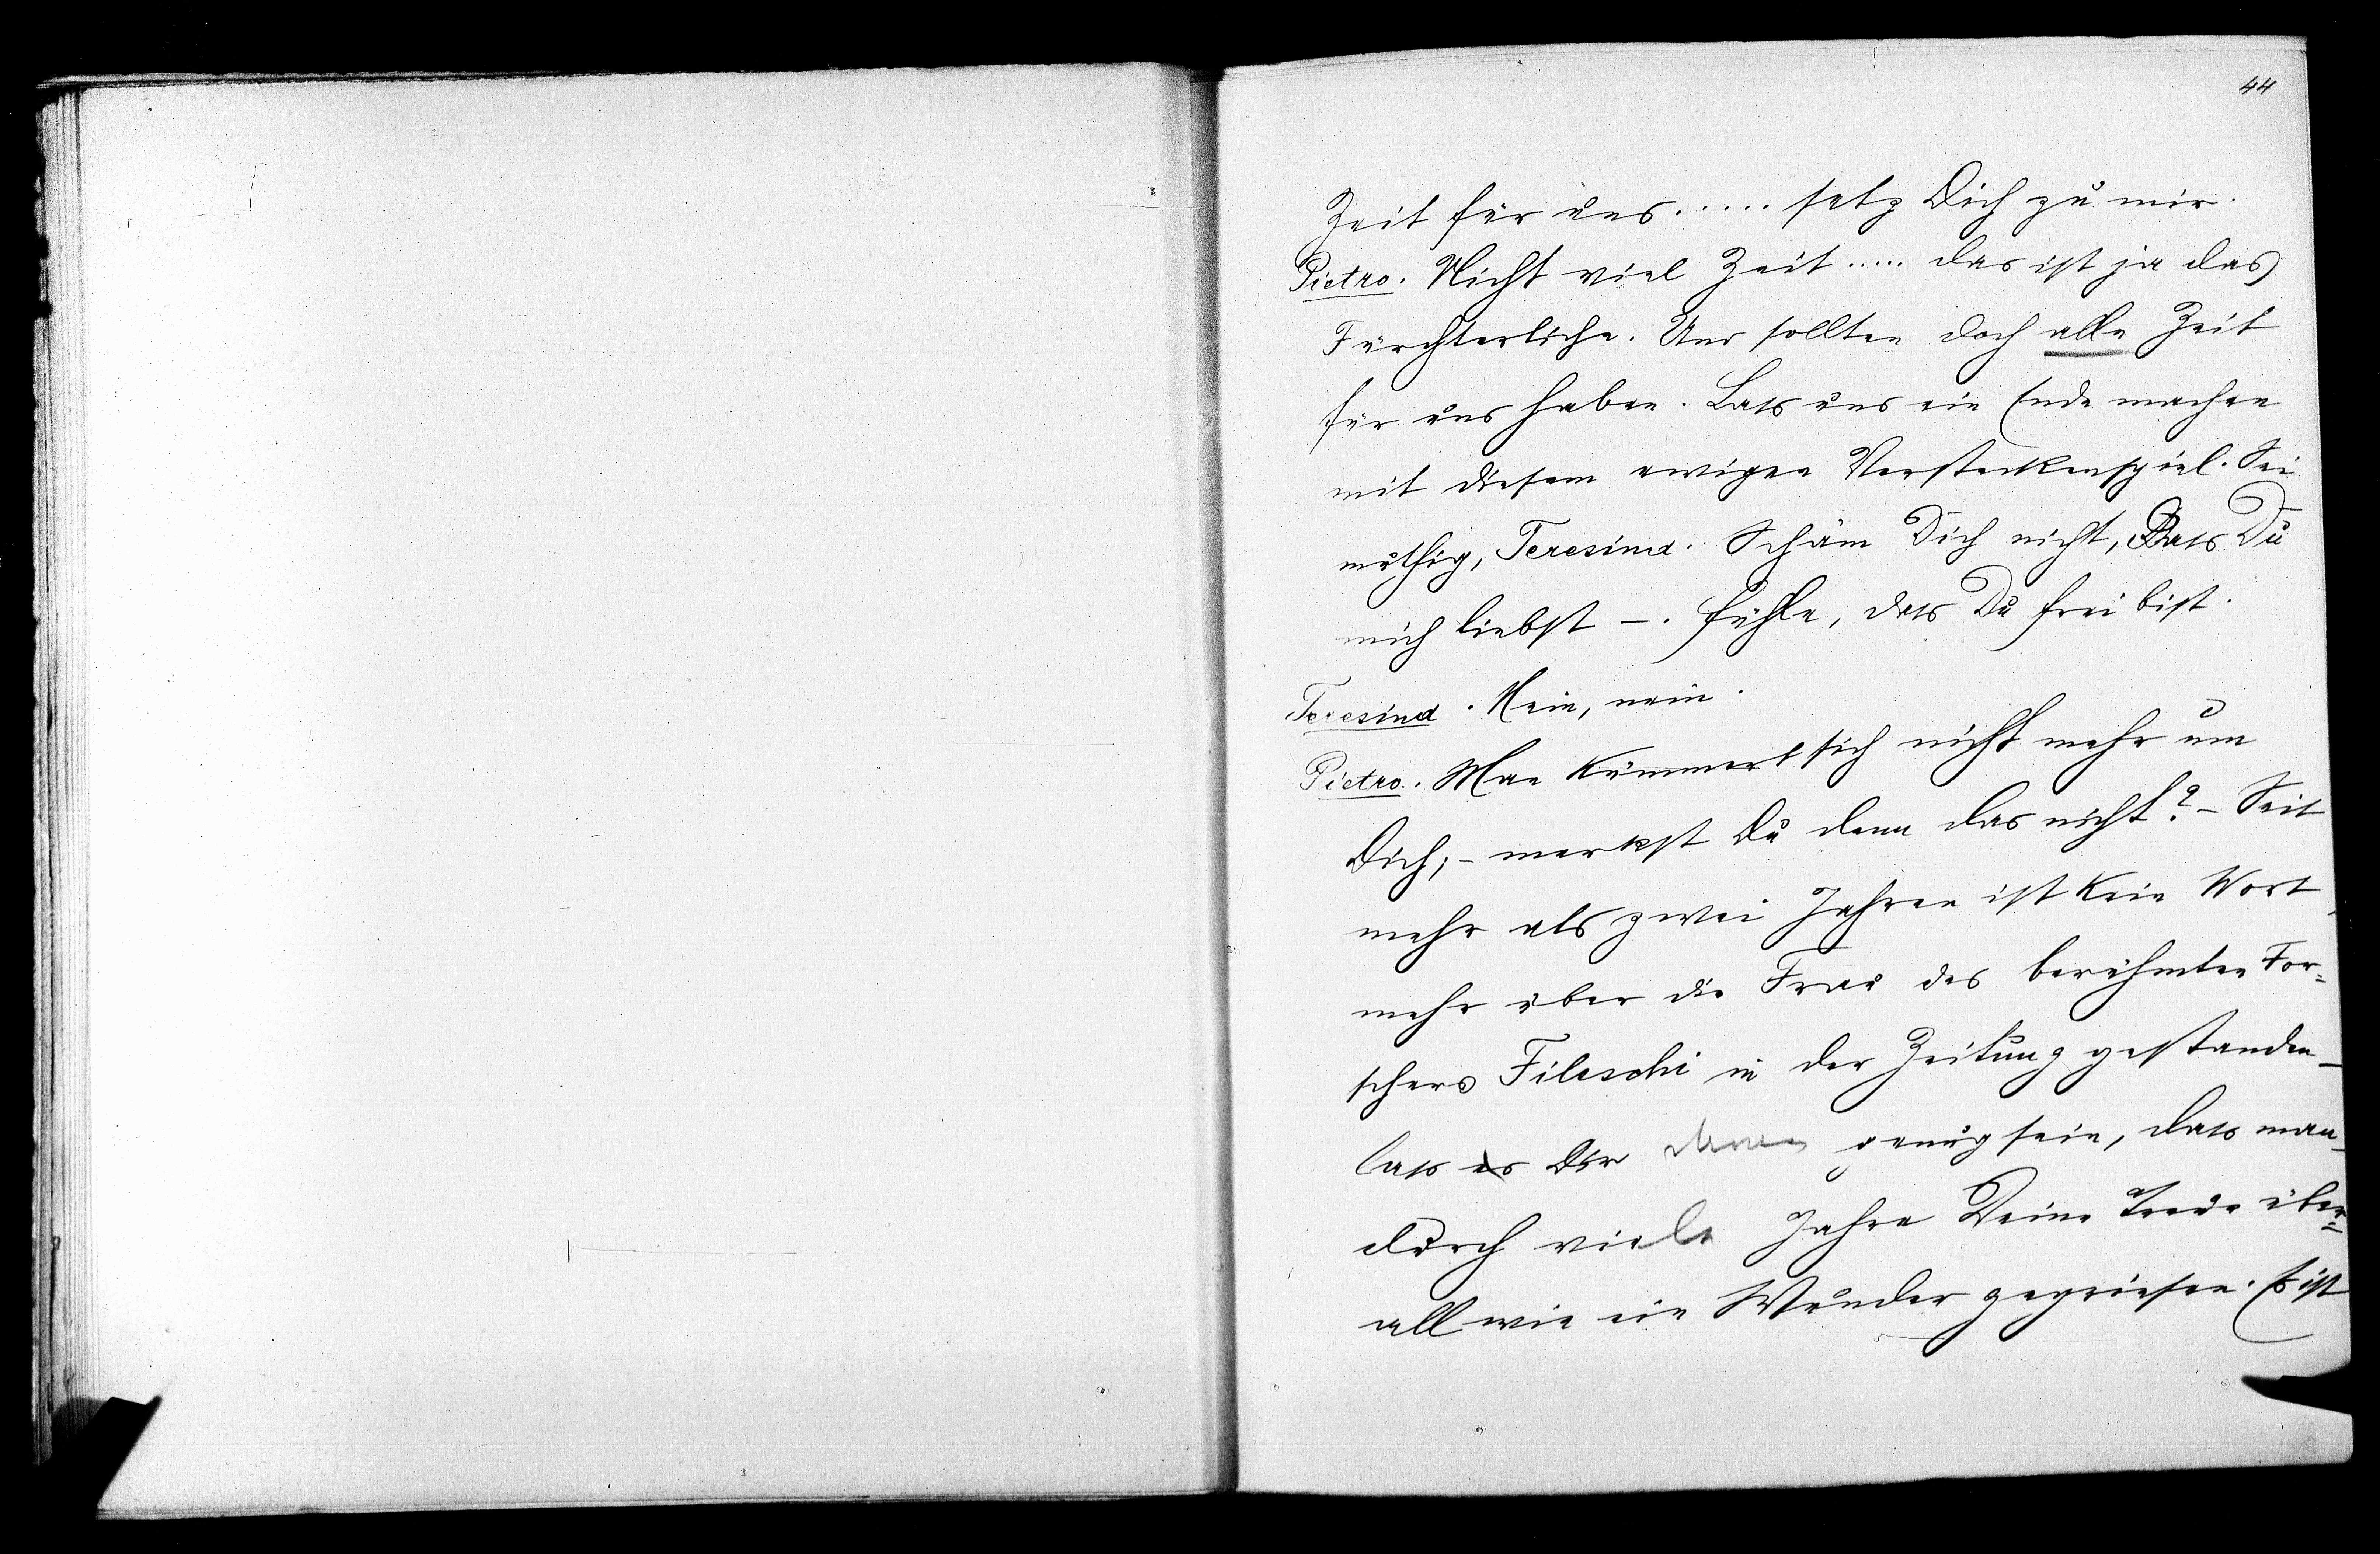 44
Zeit für uns..... setz Dich zu mir.
Pietro. Nicht viel Zeit..... das ist ja das
Fürchterliche. Uns sollten doch alle Zeit
für uns haben. Lass uns ein Ende machen
mit diesem ewigen Versteckenspiel. Sei
muthig, Teresina. Schäm Dich nicht, Dass Du
mich liebst –. Fühle, dass Du frei bist.
Teresina. Nein, nein.
Pietro. Man kümmert sich nicht mehr um
Dich; – merkst Du denn das nicht? – Seit
mehr als zwei Jahren ist kein Wort
mehr über die Frau des berühmten For=
schers Fileschi in der Zeitung gestanden –
lass es Dir genug sein, dass man
durch viele Jahre Deine Treue über=
all wie ein Wunder gepriesen. Es ist